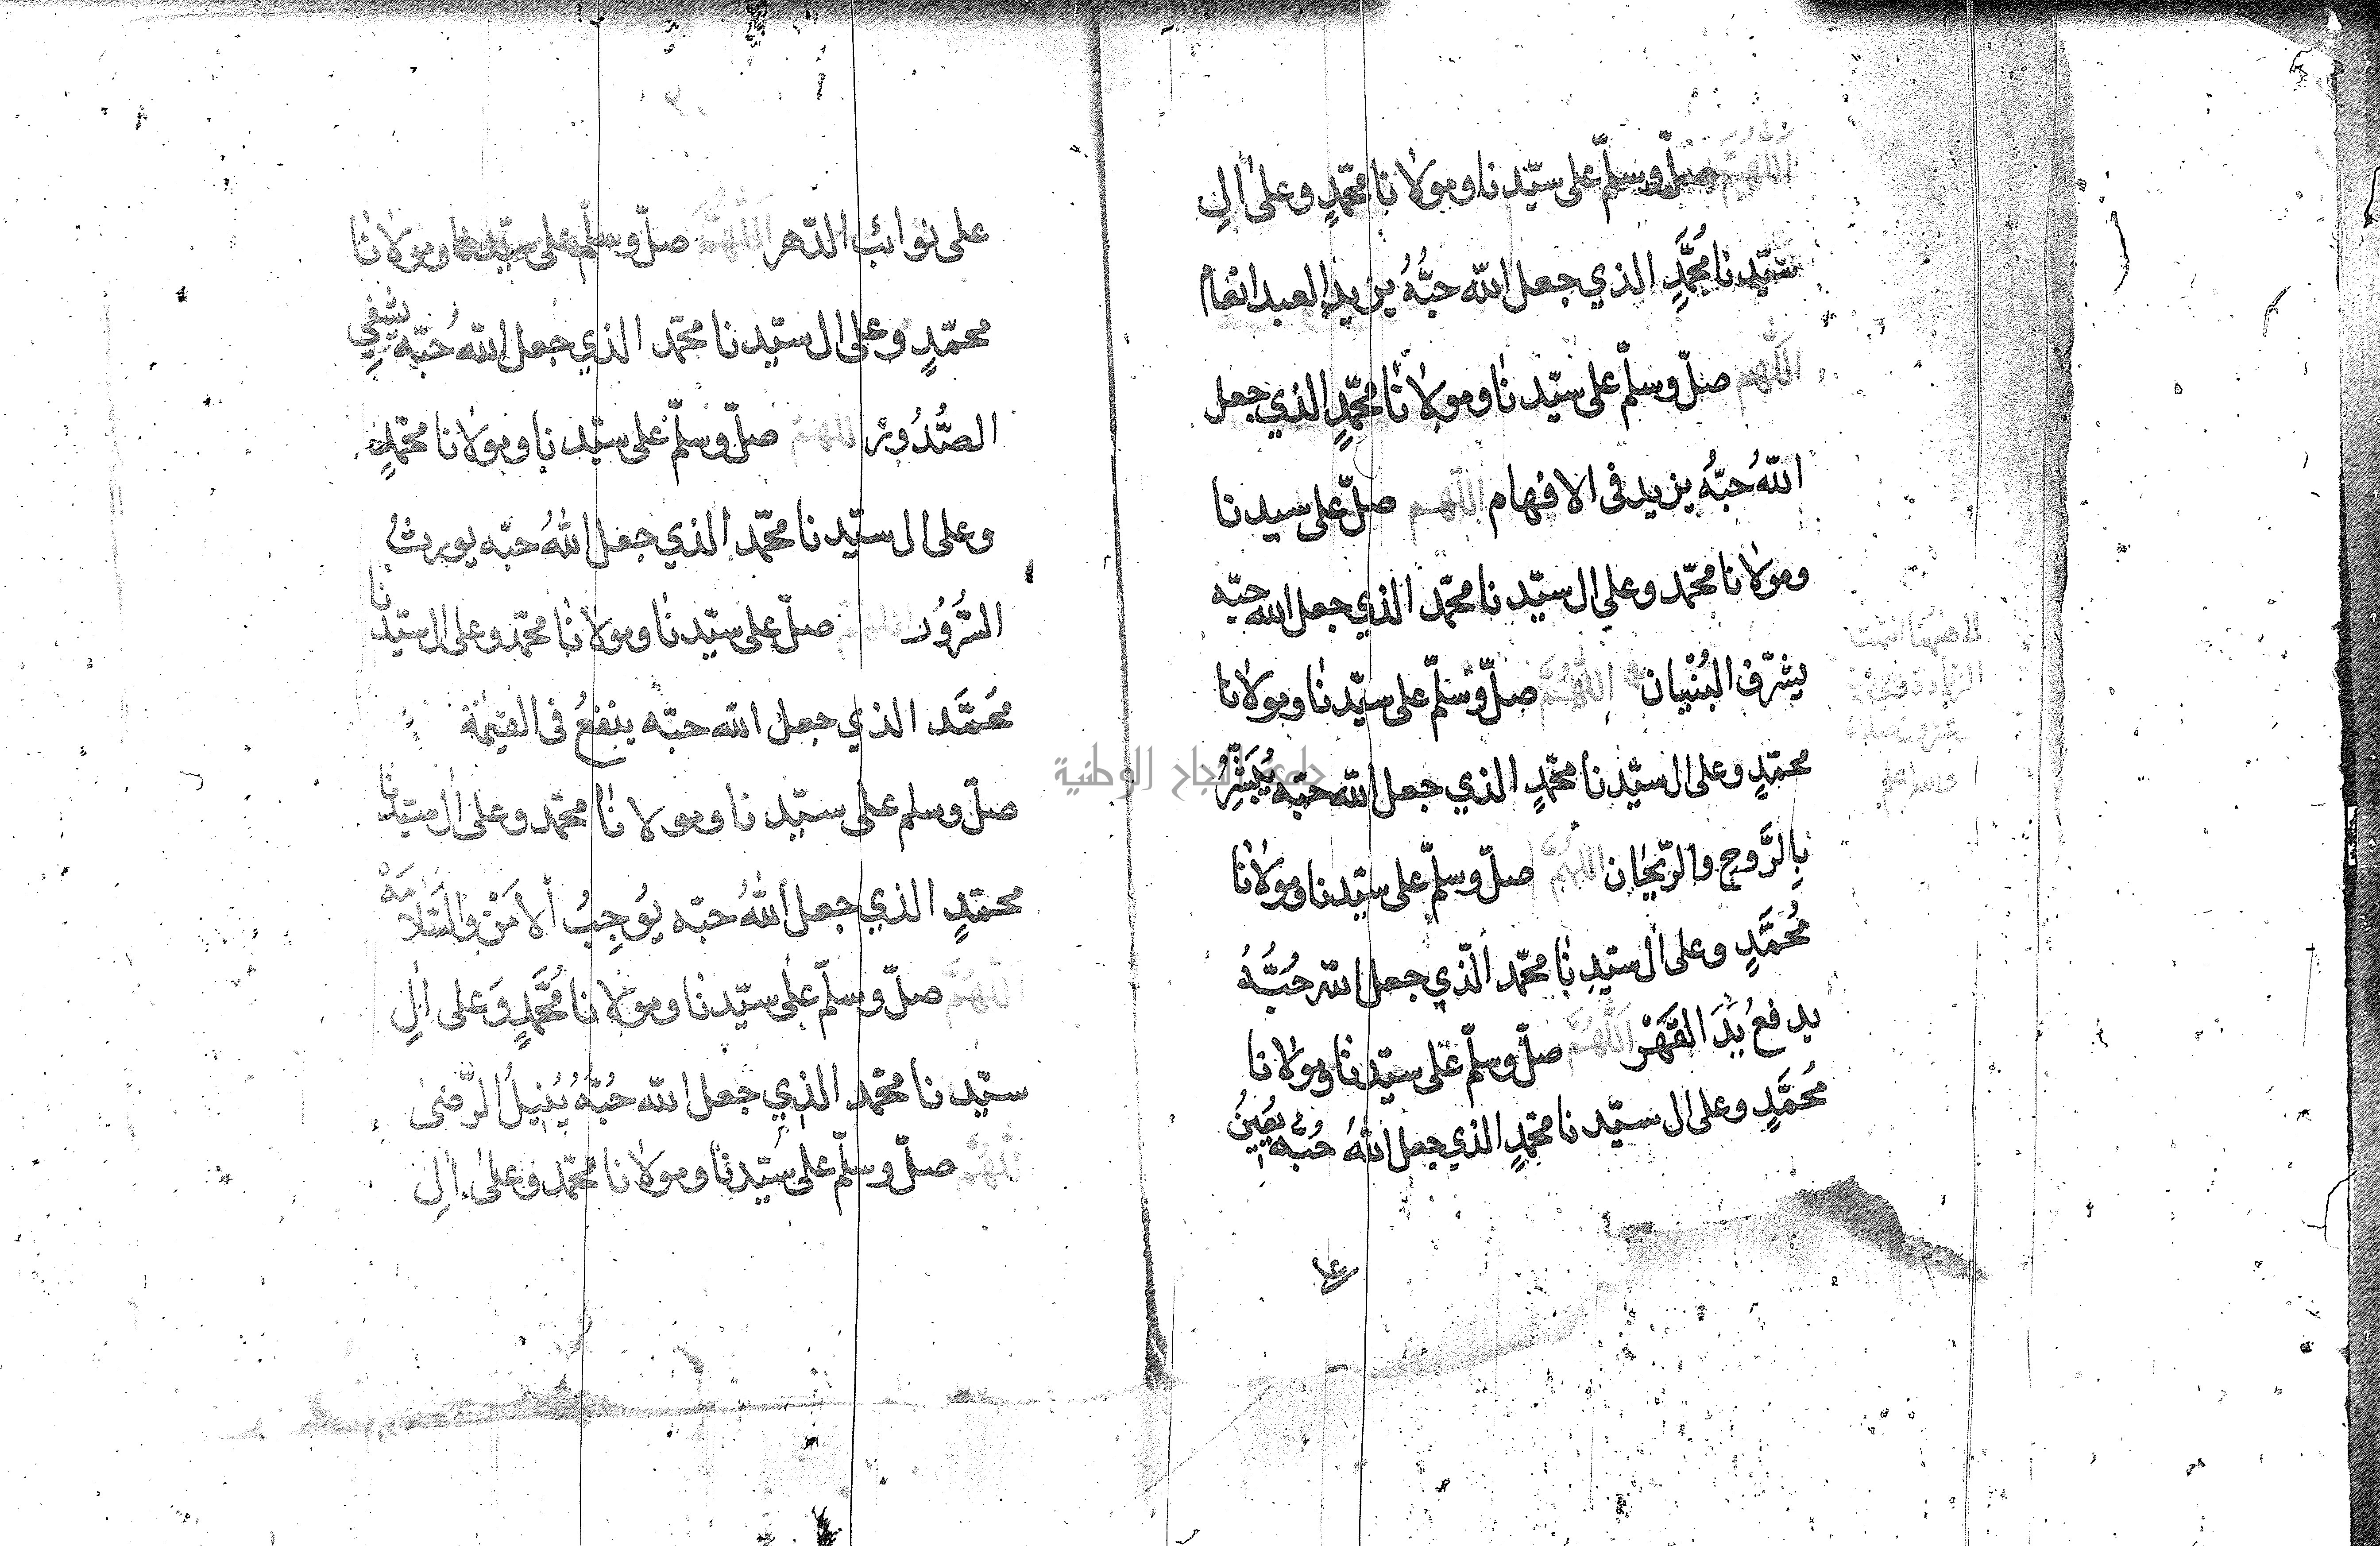 اللهم صلّ وسلّم على سيّدنا ومولانا محمّدٍ وعلى اٰلِ
سيّدنا مُحمَّدٍ الذي جعل الله حبُّهُ يزيد العبد انعام
اللّهم صلّ وسلّم على سيّدنا ومولانا محمّدٍ الذي جعل
اللّهُ حبَّهُ يزيد فى الافهام اللّهم صلّ على سيدنا
ومولانا محمّد وعلى ال سيّدنا محمّد الذي جعل الله حبّه
يشرّف البُنْيان اللّهُمَّ صلّ وسلّم على سيّدنا ومولانا
محمّدٍ وعلى ال سيّدنا محمّدٍ الذي جعل اللّه حبّه يُبَشِّرُ
بِالرَّوح والرّيحان اللهمّ صلّ وسلّم على سيّدنا ومولانا
مُحمَّدٍ وعلى اٰل سيّدِنا محمّد الّذي جعل اللّه حُبَّهُ
يدفعُ يَدَ القَهَرْ اَللّٰهُمَّ صلّ وسلّم على سيّدنا ومولانا
مُحمَّدٍ وعلى ال سيّدنا محمّدٍ الذي جعل اللّهُ حُبَّهُ يُعِينُ
على
على نوائب الدّهر اَللّهُمَّ صلّ وسلّم على سيّدنا ومولانا
محمّدٍ وعلى ال سيّدنا محمّد الذي جعل اللّه حُبّه يشفي
الصُّدُور اللهمّ صلّ وسلّم على سيّدنا ومولانا محمّدٍ
وعلى ال سيّدنا محمّد الذي جعل اللّهُ حبّه يورث
السُّرُور اللهم صلّ على سيّدنا ومولانا محمّد وعلى ال سيّدنا
مُحمَّد الذي جعل اللّه حبّه ينفعُ فى القيٰمة
صلّ وسلم على سيّدنا ومولانا محمّد وعلى اٰل سيّدنا
محمّدٍ الذي جعل اللّهُ حبّه يُوجِبُ الاَمَنْ والسَّلاَمَهْ
اللّهُمَّ صلّ وسلّم على سيّدنا ومولانا مُحمَّدٍ وَعلى اٰلِ
سيّدنا محمّد الذي جعل اللّه حُبَّهُ يُنيلُ الرّضىٰ
اللّهُمَّ صلّ وسلّم على سيّدنا ومولانا محمّد وعلى اٰلِ